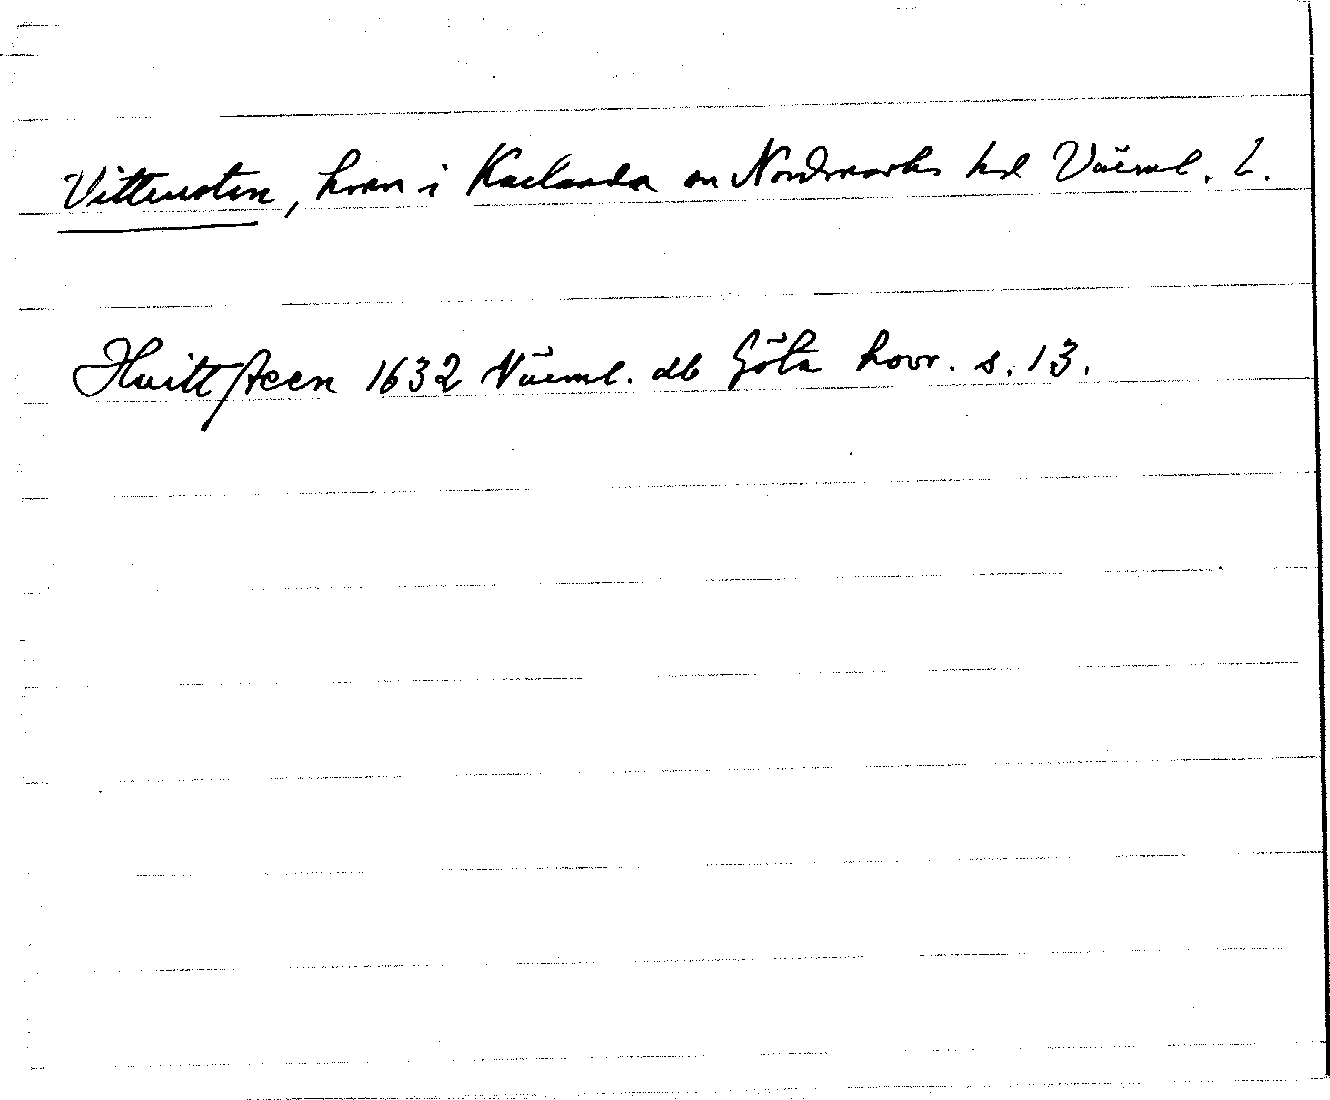 Vittensten, hmn i Karlanda sn Nordmarks hd Värml. L.
Huitt steen 1632 Värml. db Göta hovr. s. 13.